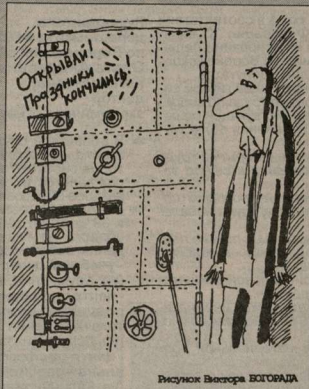 Открывай!
Праздники
кончились!
Рисунок Виктора БОГОРАДА